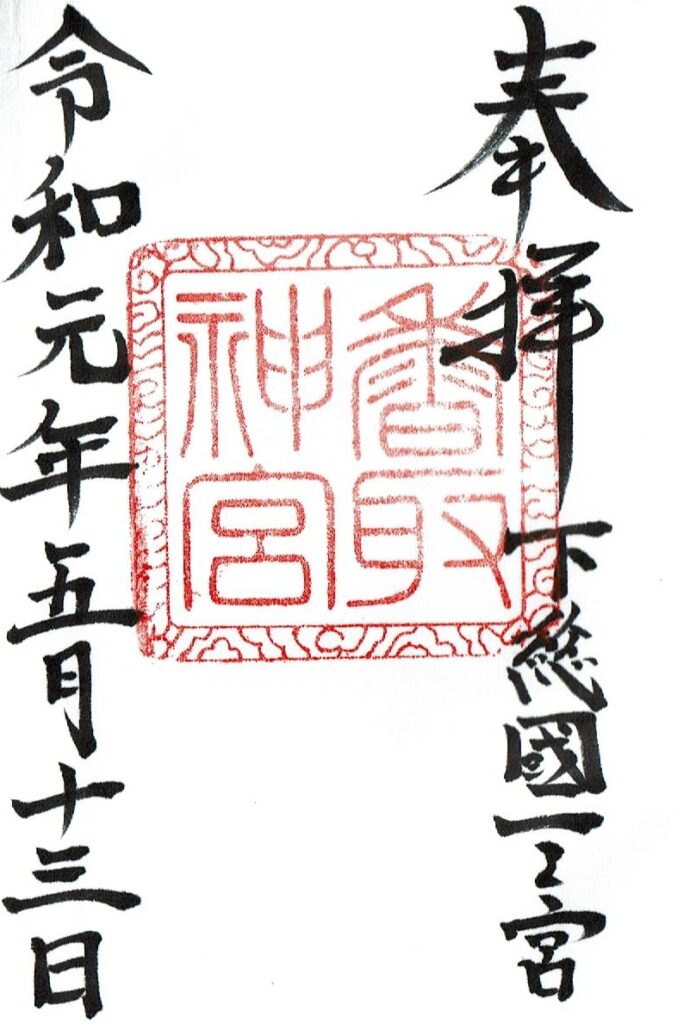 奉拝
下総國一之宮
香取
神宮
令和元年五月十三日